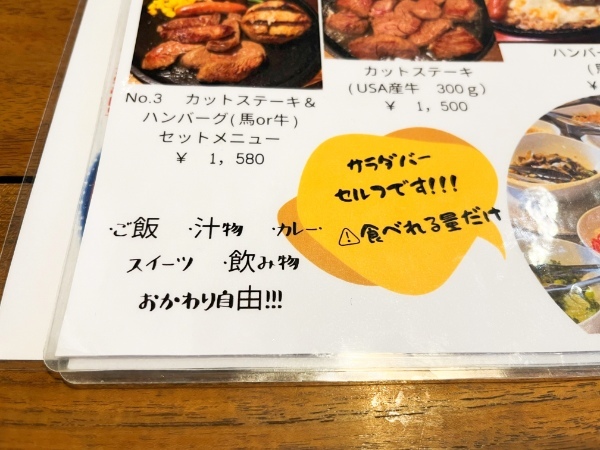 No.3 カットステーキ&
ハンバーグ(馬or牛)
セットメニュー
¥ 1,580
カットステーキ
(USA産牛 300g)
¥ 1,500
ハンバー
¥
サラダバー
セルフです!!!
⚠食べれる量だけ
・ご飯 ・汁物 ・カレー・
スイーツ ・飲み物
おかわり自由!!!